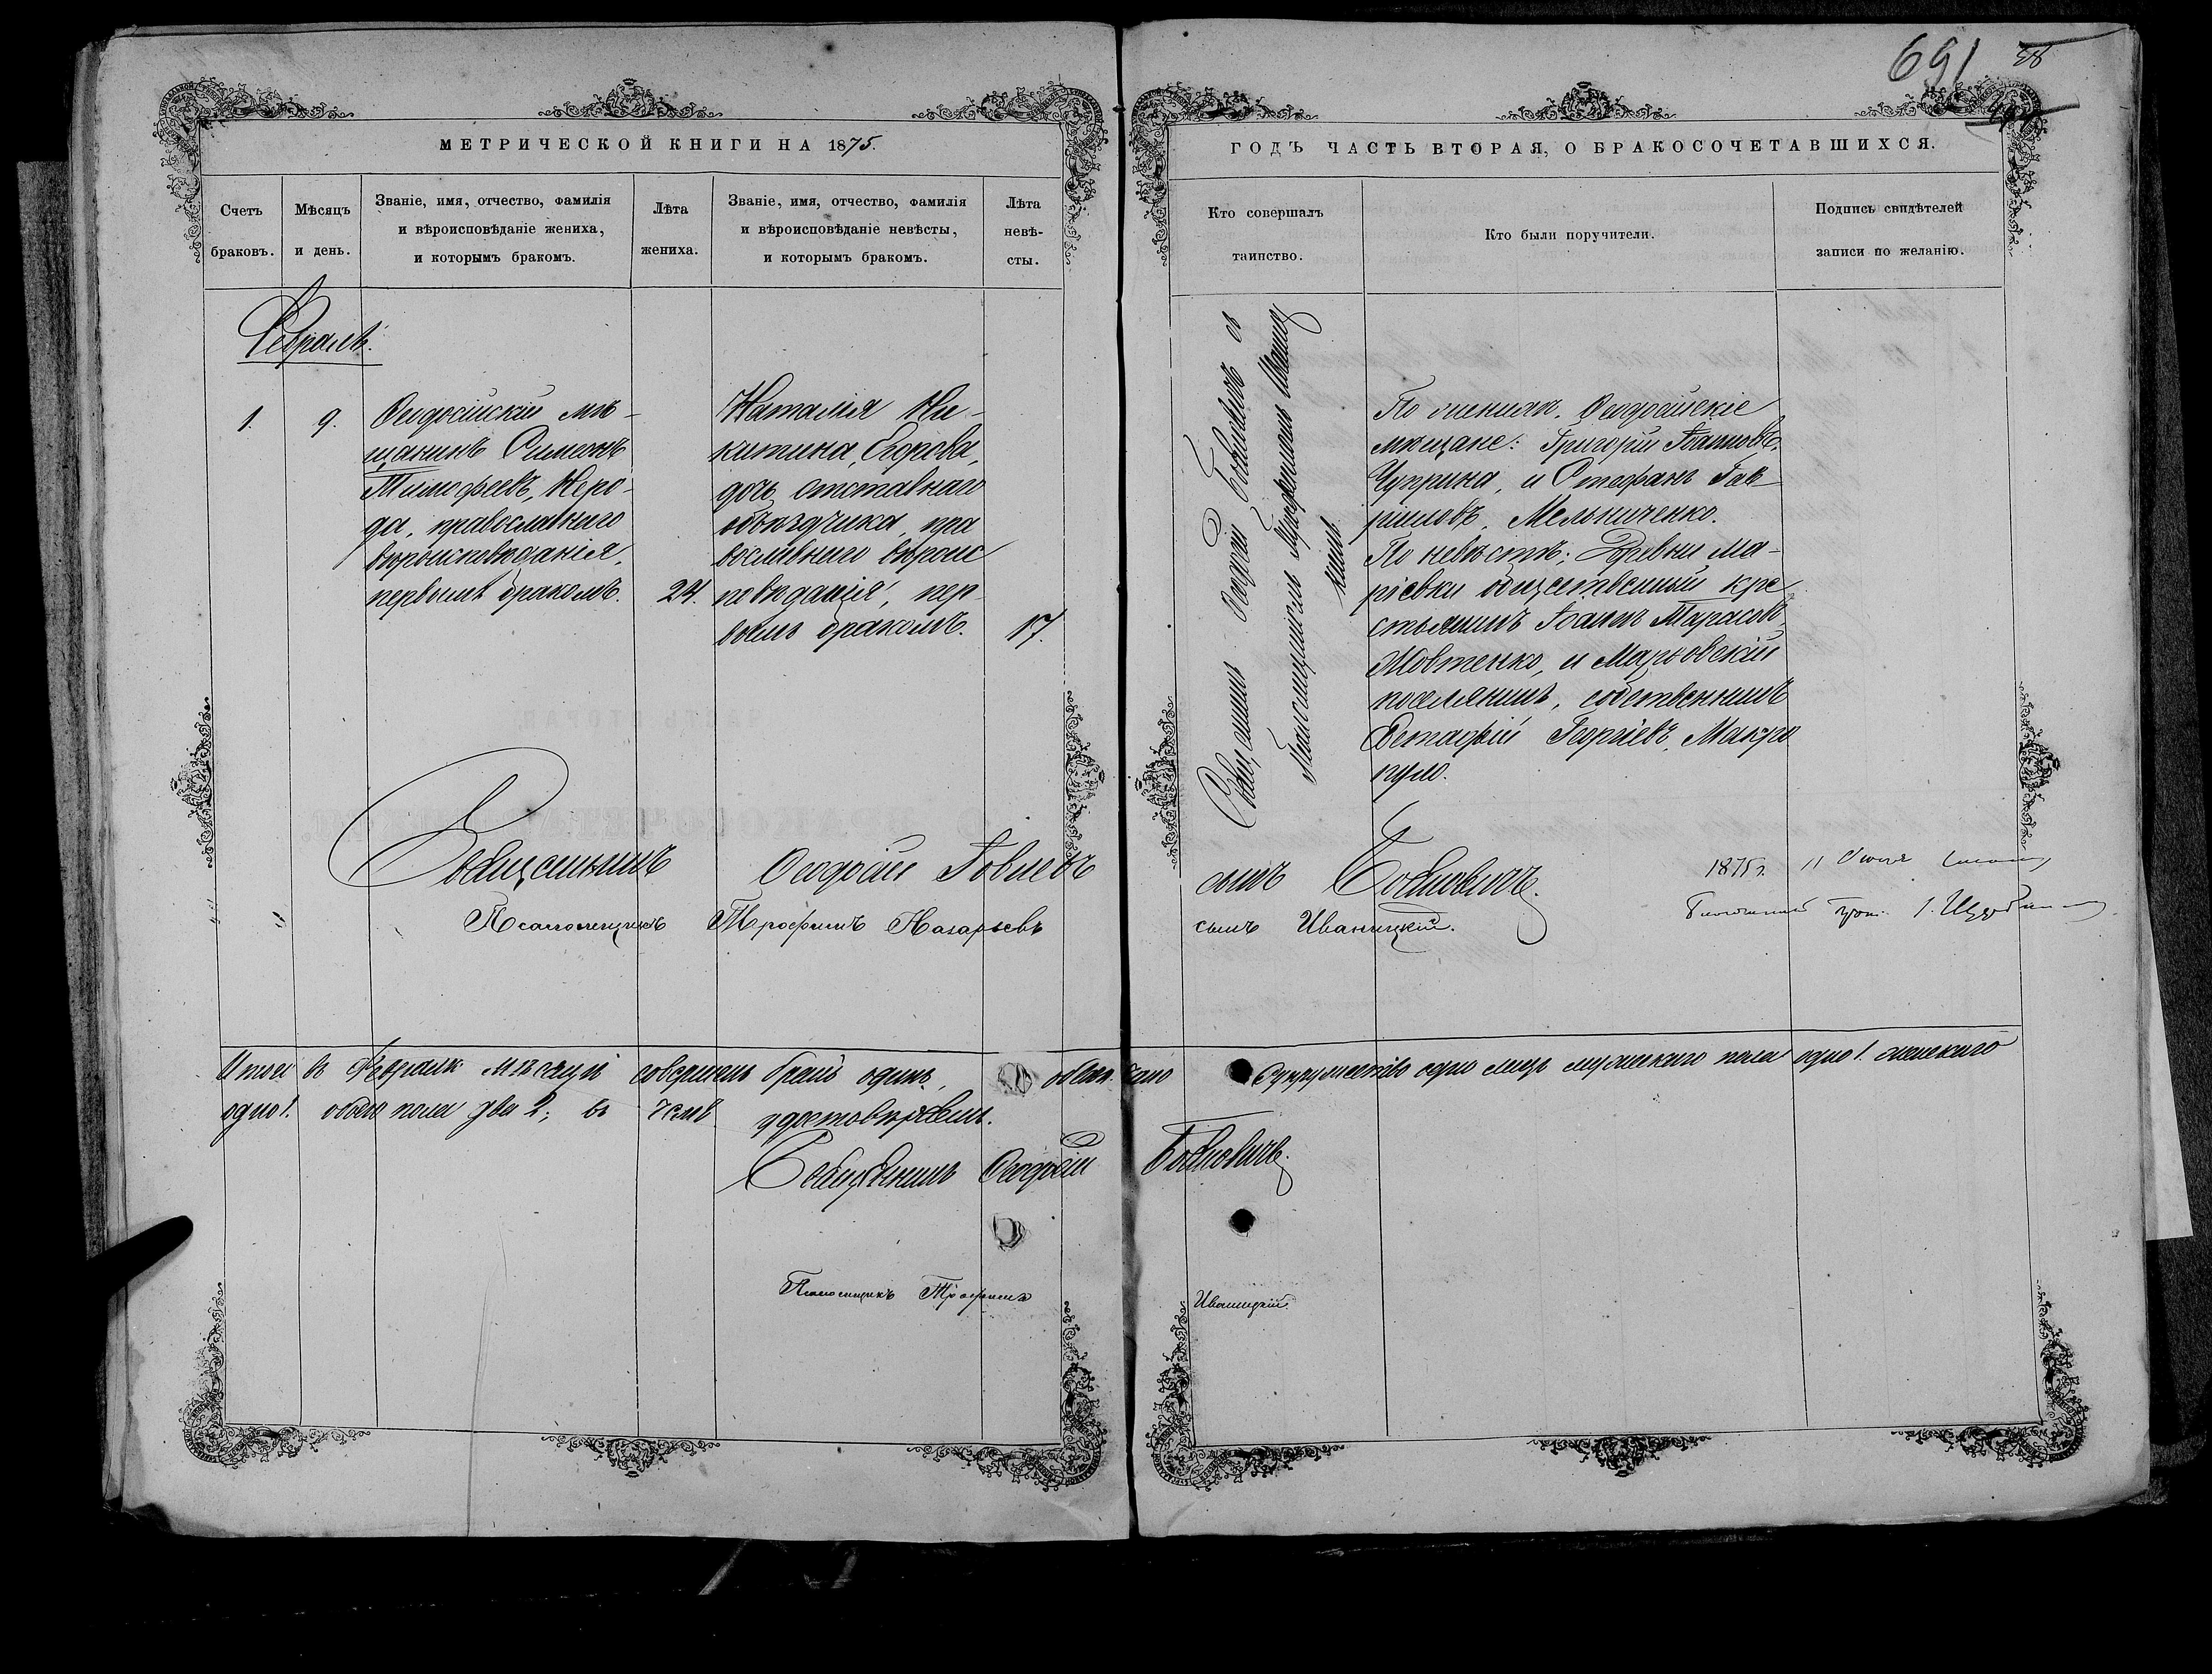 691 38
МЕТРИЧЕСКОЙ КНИГИ НА 1875.
ГОДЪ ЧАСТЬ ВТОРАЯ, О БРАКОСОЧЕТАВШИХСЯ.
Счетъ
браковъ.
Мѣсяцъ
и день.
Званіе, имя, отчество, фамилія
и вѣроисповѣданіе жениха,
и которымъ бракомъ.
Лѣта
жениха.
Званіе, имя, отчество, фамилія
и вѣроисповѣданіе невѣсты,
и которымъ бракомъ.
Лѣта
невѣ-
сты.
Кто совершалъ
таинство.
Кто были поручители.
Подпись свидѣтелей
записи по желанію.
Февраль.
1.
9.
Ѳеодосійскій мѣ-
щанинъ Симеонъ
Тимофеевъ, Неро-
да, православнаго
вѣроисповѣданія,
первымъ бракомъ.
24.
Наталія Ни-
китина, Егорова,
дочь отставнаго
объѣздчика, пра
вославнаго вѣроис
повѣданія, пер-
вымъ бракомъ.
17.
Священникъ Ѳеодосій Бойковичъ съ
Псаломщикомъ Трофимомъ Иваниц
кимъ
По женихѣ. Ѳеодосійскіе
мѣщане: Григорій Іоанновъ,
Чуприна, и Стефанъ Гав-
ріиловъ, Мельниченко.
По невѣстѣ: Деревни Ма-
ріевки общественный кре
стьянинъ Іоаннъ Тарасовъ,
Жовтенко, и Марьовскій
поселянинъ, собственникъ
Евстафій Георгіевъ, Макро
пуло.
Священникъ Ѳеодосій Іовлевъ сынъ Бойковичъ.
Псаломщикъ Трофимъ Назарьевъ сынъ Иваницкій.
1875 г. 11
Итого въ Февралѣ мѣсяцѣ совершенъ бракъ одинъ, супружество одно лицъ мужескаго пола одно 1. женскаго
одно 1. обоего пола два 2; въ чемъ удостовѣряемъ.
Священникъ Ѳеодосій Бойковичъ.
Псаломщикъ Трофимъ Иваницкій.